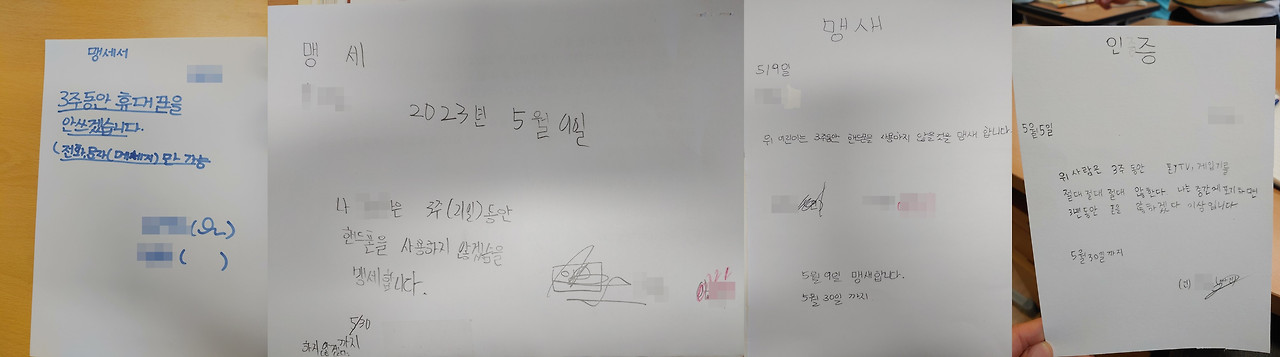 맹세서
3주동안 휴대폰을
안쓰겠습니다.
(전화,문자(메세지)만 가능
맹 세
2023년 5월 9일
나 은 3주(21일)동안
핸드폰을 사용하지 않겠슴을
맹세합니다.
5/30
까지
맹새
5/9일
위 어린이는 3주동안 핸드폰을 사용하지 않을것을 맹새 합니다.
5월 9일 맹새합니다.
5월 30일 까지
인증
5월5일
위 사람은 3주 동안 폰,TV, 게임기를
절대 절대 절대 않한다. 나는 중간에 포기하면
3년동안 폰을 않하겠다 이상입니다
5월30일까지
(인)